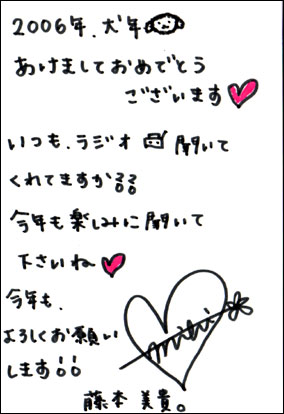 2006年、犬年
あけましておめでとう
ございます
いつも、ラジオ 聞いて
くれてますか!!
今年も楽しみに聞いて
下さいね
今年も、
よろしくお願い
します!!
miki
藤本 美貴。